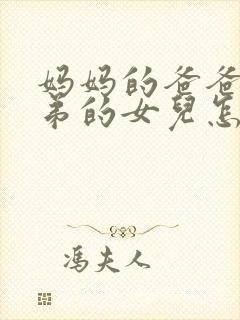 妈妈的爸爸
弟的女兒怎
馮夫人